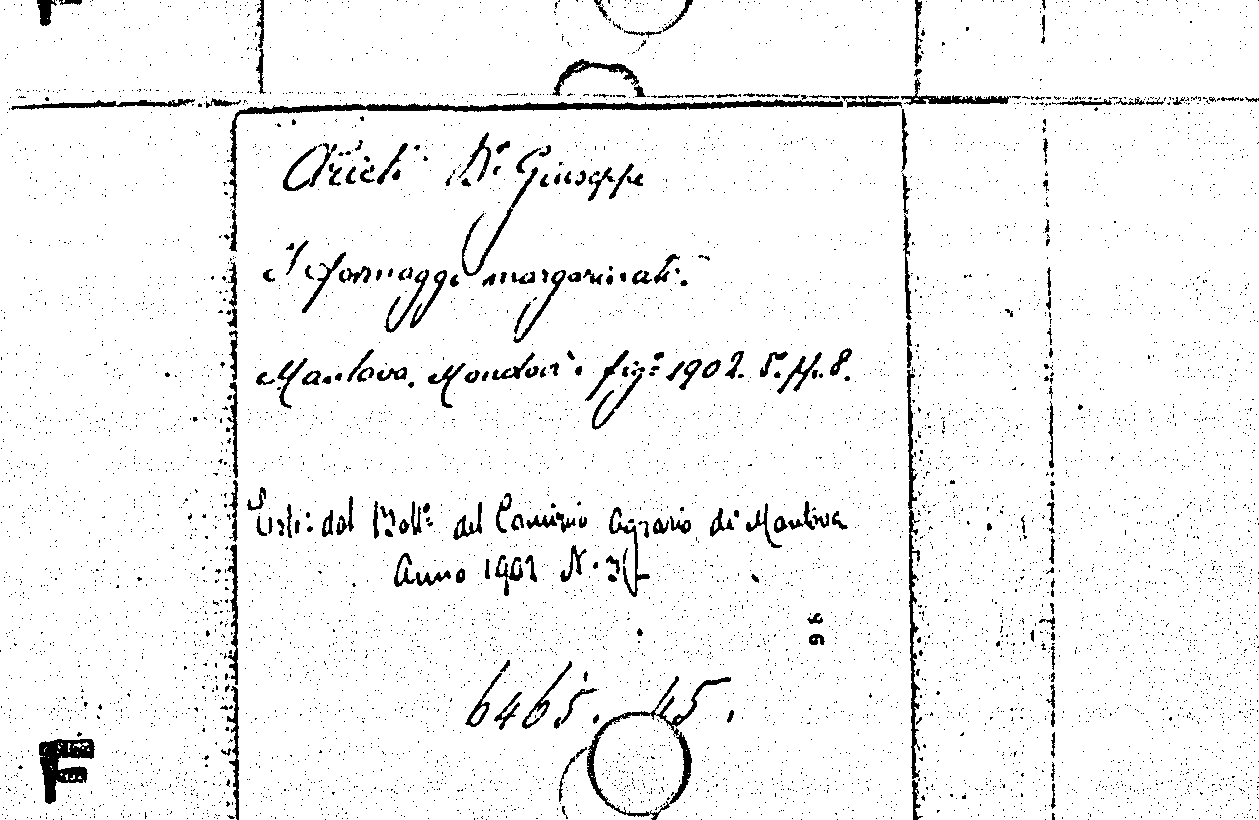 Arieti Dr. Giuseppe
I formaggi margarinati.
Mantova. Mondovì. figo 1902. 8o. pp. 8.
Estr: dal Bollo: del Comizio agrario di Mantova
Anno 1902 N. 3
96
6465. 45.
F